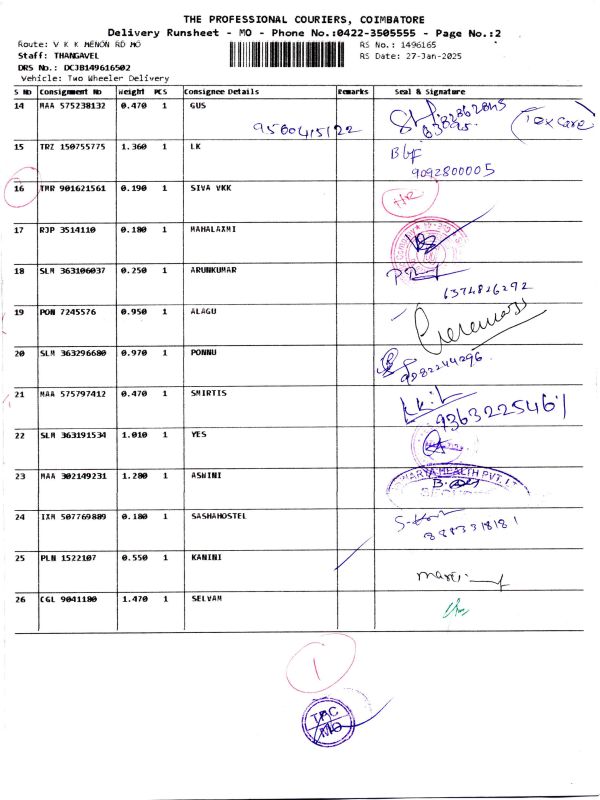 THE PROFESSIONAL COURIERS, COIMBATORE
Delivery Runsheet - MO - Phone No.:0422-3505555 - Page No.:2
Route: V K K MENON RD MO
RS No.: 1496165
Staff: THANGAVEL
RS Date: 27-Jan-2025
DRS No.: DCJB149616502
Vehicle: Two Wheeler Delivery
S No Consignment No Weight PCS Consignee Details Remarks Seal & Signature
14 MAA 575238132 0.470 1 GUS
9580415122
(Tex care)
15 TRZ 150755775 1.360 1 LK
9092800005
16 TMR 901621561 0.190 1 SIVA VKK HR
17 RJP 3514110 0.180 1 MAHALAXMI
18 SLM 363106037 0.250 1 ARUNKUMAR
6374826292
19 PON 7245576 0.950 1 ALAGU
20 SLM 363296680 0.970 1 PONNU
9982244296
21 MAA 575797412 0.470 1 SMIRTIS
9363225461
22 SLM 363191534 1.010 1 YES
23 MAA 302149231 1.280 1 ASWINI
HEALTH PVT.
24 IXM 507769889 0.180 1 SASHAHOSTEL
25 PLN 1522107 0.550 1 KANINI
26 CGL 9041180 1.470 1 SELVAM
1
TPC
MO